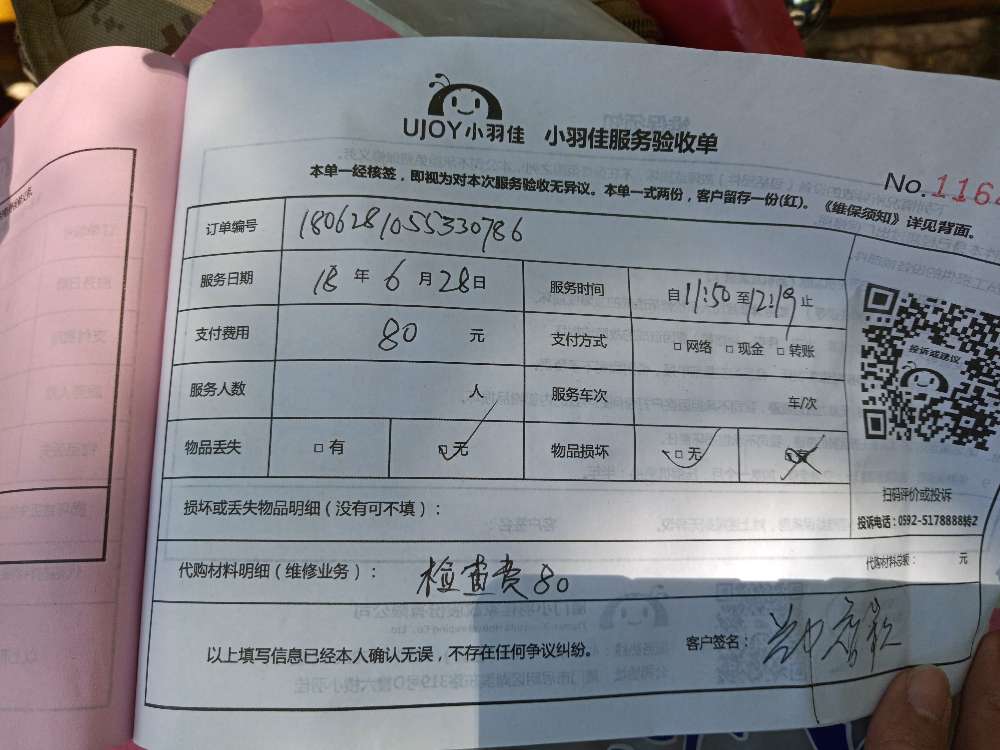 UJOY小羽佳 小羽佳服务验收单
No.1164
本单一经核签，即视为对本次服务验收无异议。本单一式两份，客户留存一份(红)。《维保须知》详见背面。
订单编号 1806281055330786
服务日期 18 年 6 月 28 日 服务时间 自 11:50 至 12:19 止
支付费用 80 元 支付方式 □ 网络 □ 现金 □ 转账
服务人数 人 服务车次 车/次
物品丢失 □ 有 □ 无 物品损坏 □ 无
投诉或建议
损坏或丢失物品明细（没有可不填）：
扫码评价或投诉
投诉电话：0592-5178888转2
代购材料明细（维修业务）： 检查费80
代购材料总额： 元
以上填写信息已经本人确认无误，不存在任何争议纠纷。 客户签名：